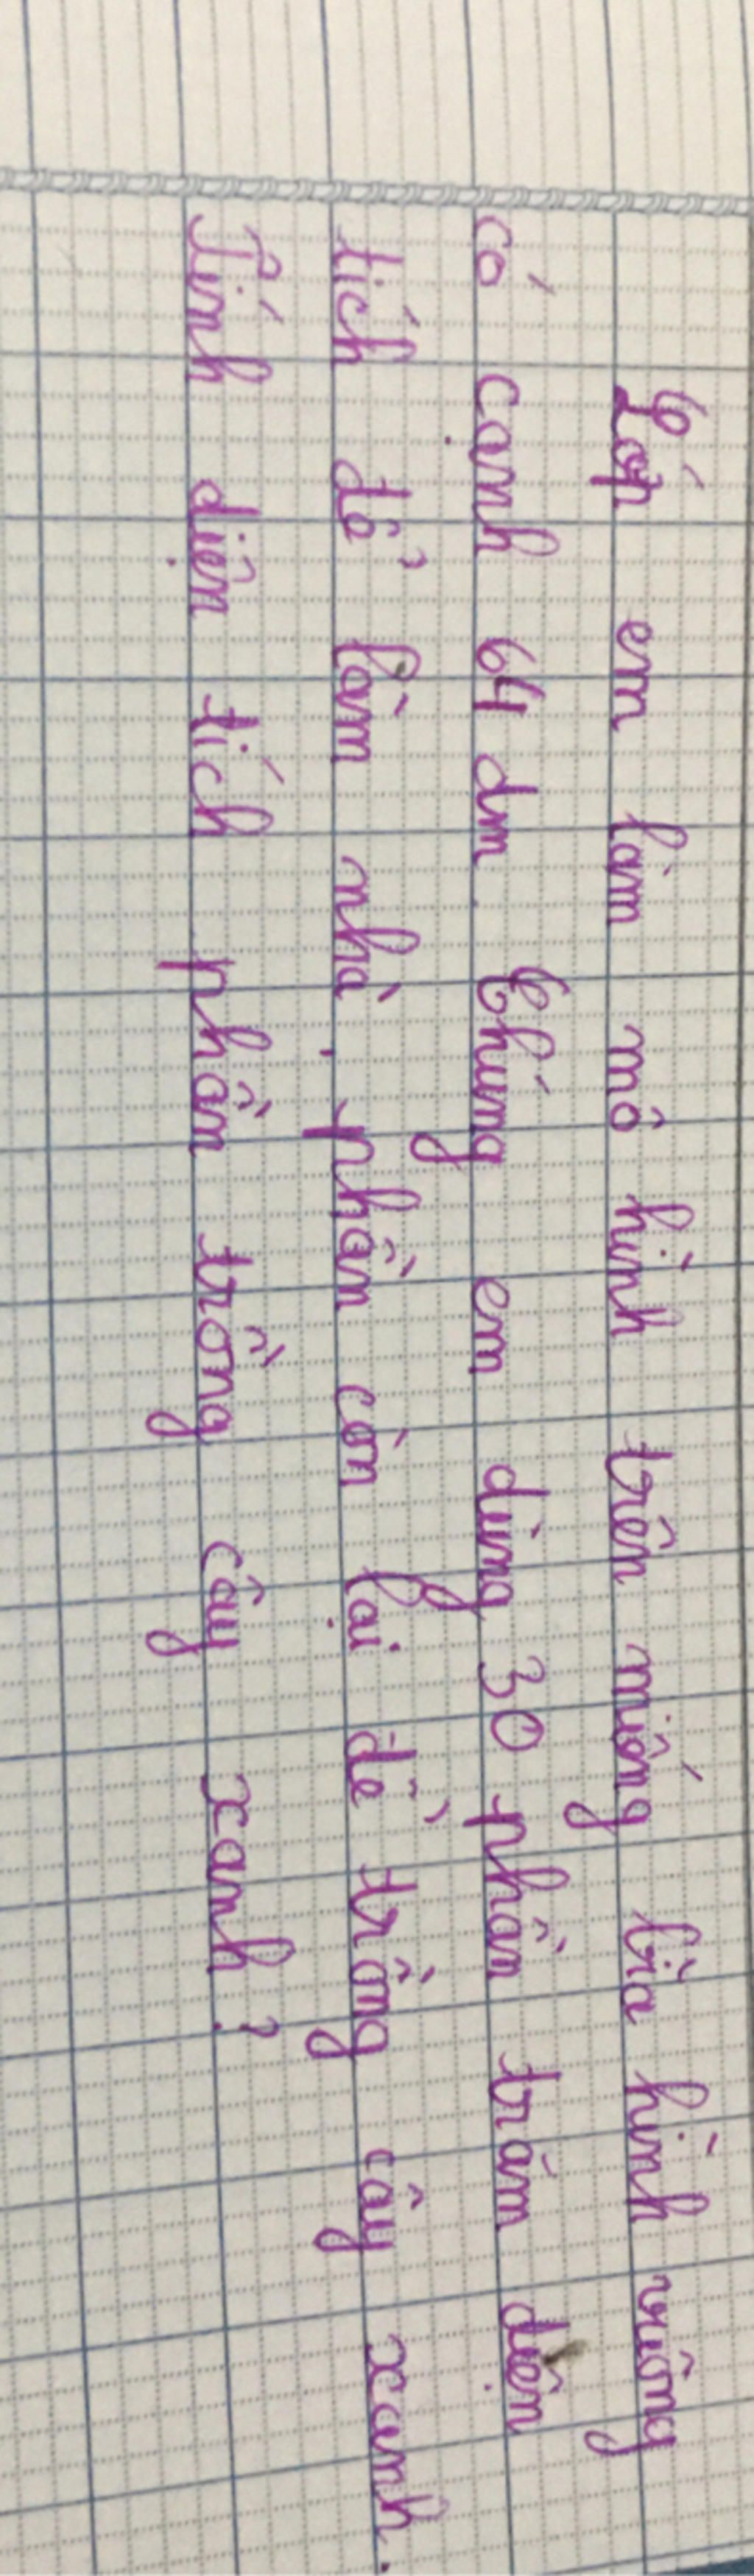 Lớp em làm mô hình trên miếng bìa hình vuông
có cạnh 64 dm. Chúng em dùng 30 phần trăm diện
tích để làm nhà. phần còn lại để trồng cây xanh.
Tính diện tích phần trồng cây xanh?